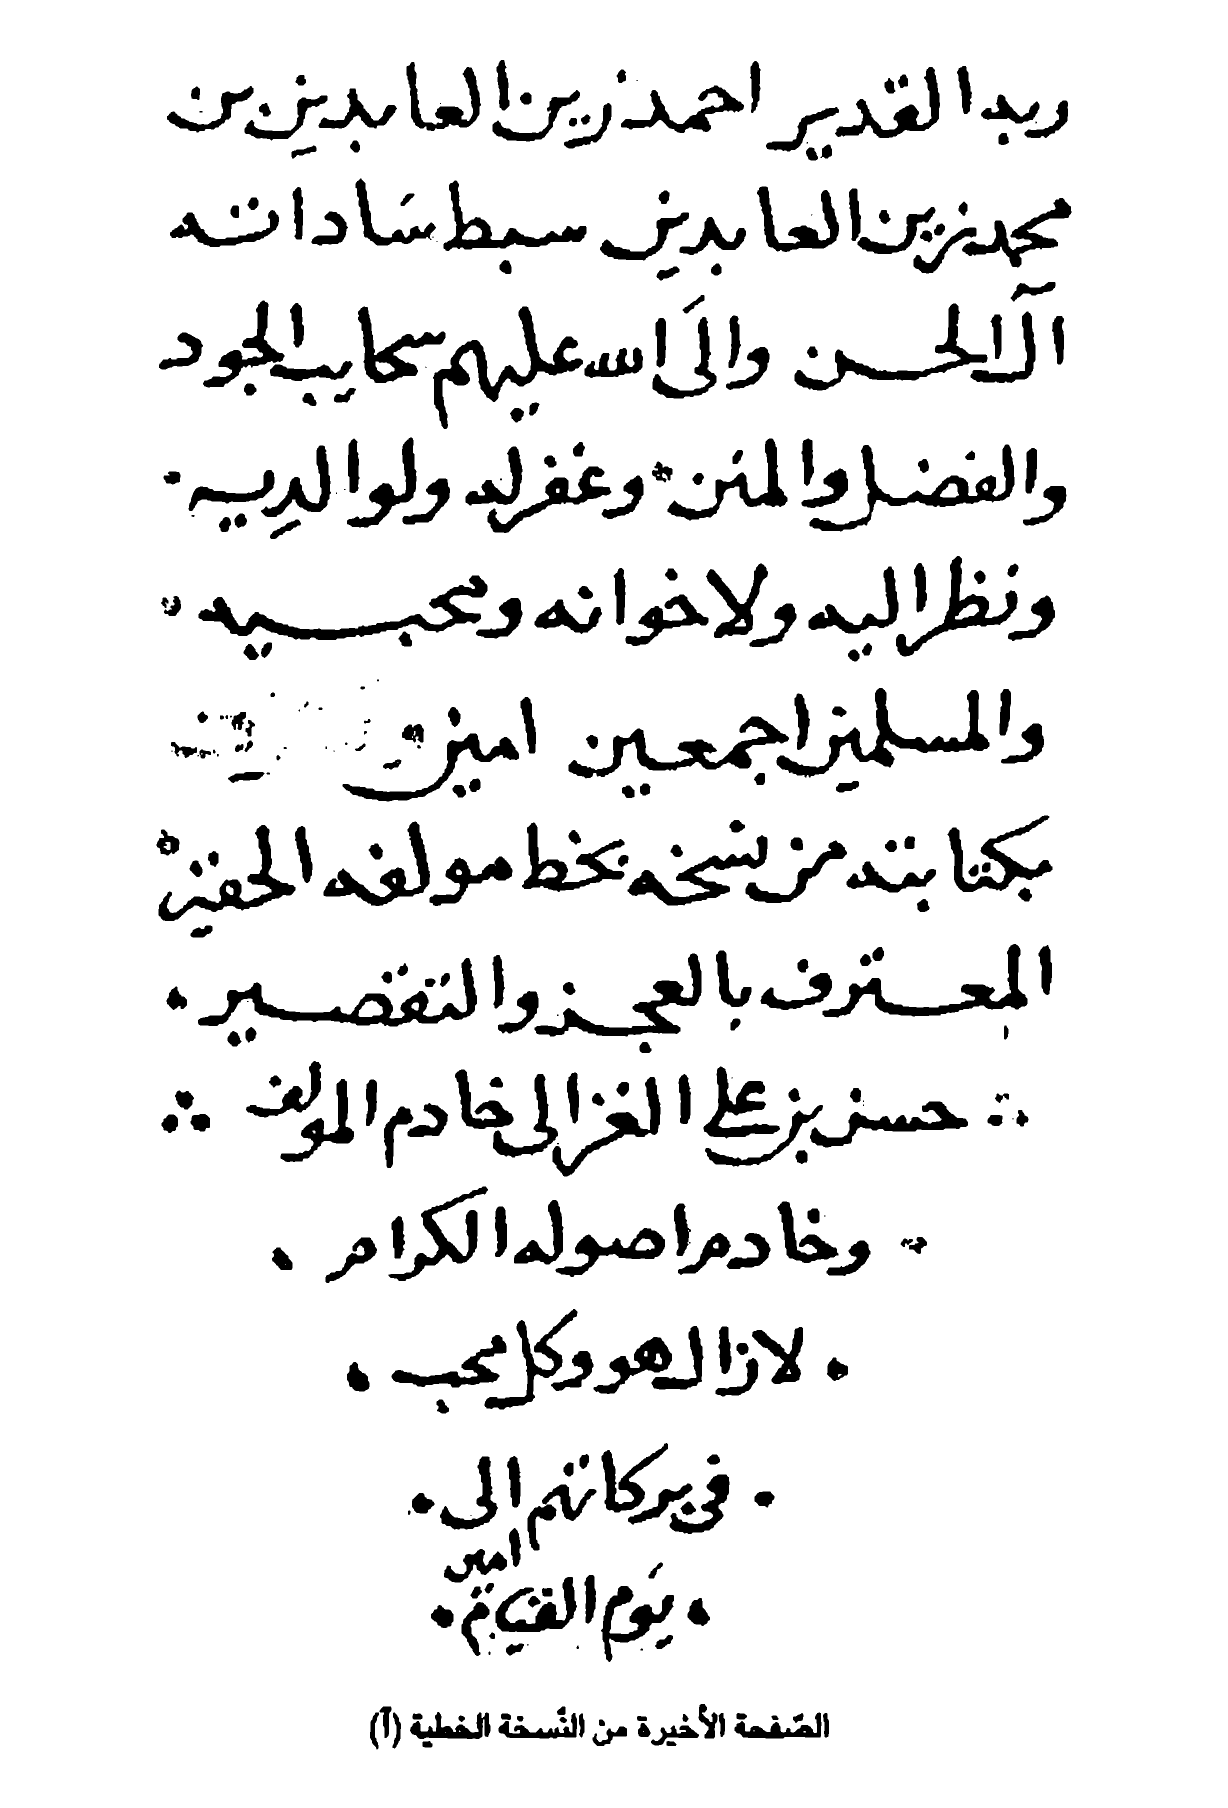 ربه القدير احمد زين العابدين بن
محمد زين العابدين سبط ساداته
آل الحسن والَى الله عليهم سحايب الجود
والفضل والمنن وغفر له ولوالديه
ونظر اليه ولاخوانه ومحبيه
والمسلمين اجمعين امين
بكتابته من نسخه بخط مولفه الحقير
المعترف بالعجز والتقصير
حسن بن علي الغزالى خادم المولف
وخادم اصوله الكرام
لازال هو وكل محب
فى بركاتهم الى
يوم القيامة امين
الصّفحة الأخيرة من النّسخة الخطية (آ)